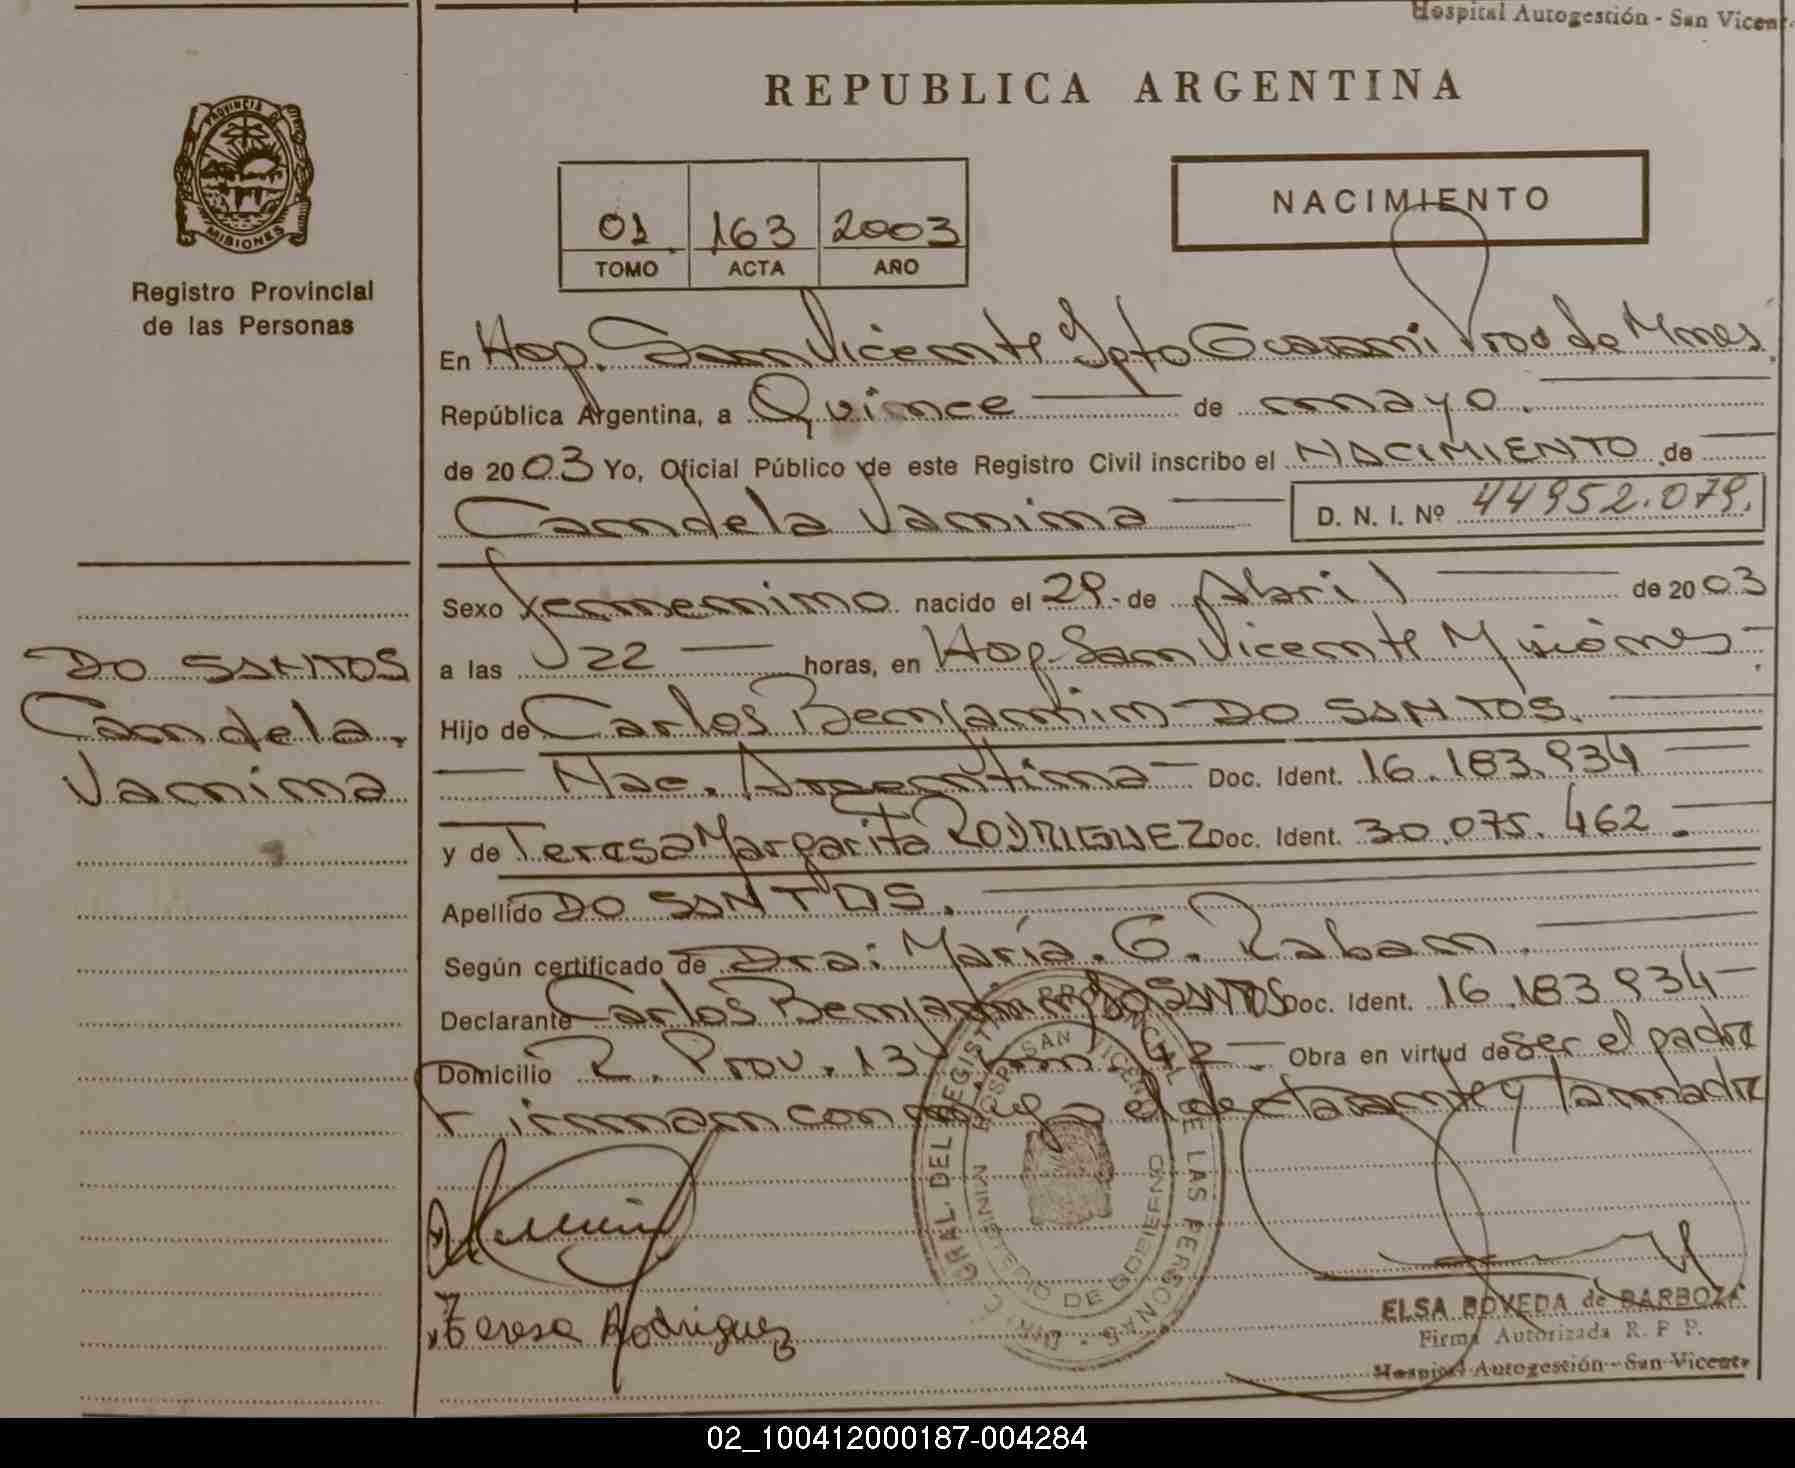 Hospital Autogestión - San Vicente
REPUBLICA ARGENTINA
PROVINCIA DE MISIONES
Registro Provincial
de las Personas
NACIMIENTO
01 163 2003
TOMO ACTA AÑO
En Hop. San Vicente Dpto Guarani Prov de Mnes
República Argentina, a Quince de mayo.
de 2003 Yo, Oficial Público de este Registro Civil inscribo el NACIMIENTO de
Candela Vanina D. N. I. Nº 44952.079.
Sexo femenino nacido el 29 de Abril de 2003
a las 22 horas, en Hop. San Vicente Misiones
DO SANTOS
Candela.
Vanina
Hijo de Carlos Benjamin DO SANTOS.
Nac. Argentina Doc. Ident. 16.183.934
y de Teresa Margarita RODRIGUEZ Doc. Ident. 30.075.462
Apellido DO SANTOS.
Según certificado de Dra: María. G. Raban.
Declarante Carlos Benjamin DO SANTOS Doc. Ident. 16.183934
Domicilio R. Prov. 13 km 42 Obra en virtud de ser el padre
Firman conmigo el declarante y la madre
DIREC. GRAL. DEL REGISTRO PROVINCIAL DE LAS PERSONAS
HOSP. SAN VICENTE
MINISTERIO DE GOBIERNO
Teresa Rodriguez
ELSA BOVEDA de BARBOZA
Firma Autorizada R. P. P.
Hospital Autogestión - San Vicente
02_100412000187-004284